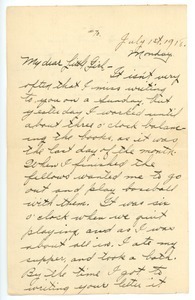 July 1st, 1918.
Monday
My dear little Girl—
It isn't very
often that I miss writing
to you on a Sunday but
yesterday I worked until
about three o'clock balanc-
ing the books, as it was
the last day of the month.
When I finished the
fellows wanted me to go
out and play baseball
with them. It was six
o'clock when we quit
playing and as I was
about all in, I ate my
supper, and took a bath.
By the time I got to
writing your letter it